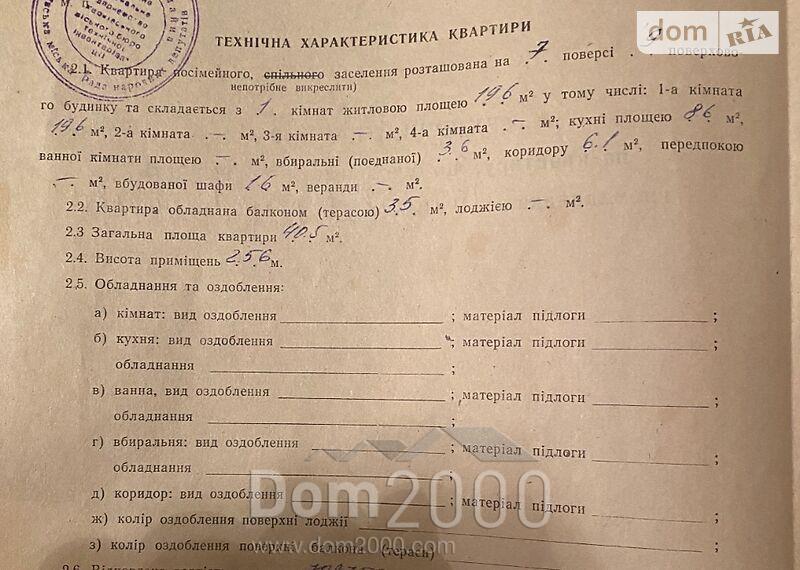 dom RIA
ТЕХНІЧНА ХАРАКТЕРИСТИКА КВАРТИРИ
2.1. Квартира посімейного, спільного заселення розташована на 7 поверсі 9 поверхово-
непотрібне викреслити)
го будинку та складається з 1 кімнат житловою площею 19.6 м², у тому числі: 1-а кімната
19.6 м², 2-а кімната — м², 3-я кімната — м², 4-а кімната — м²; кухні площею 8.6 м²,
ванної кімнати площею — м², вбиральні (поєднаної) 3.6 м², коридору 6.1 м², передпокою
— м², вбудованої шафи 1.6 м², веранди — м².
2.2. Квартира обладнана балконом (терасою) 3.5 м², лоджією — м².
2.3 Загальна площа квартири 40.5 м².
2.4. Висота приміщень 2.56 м.
2.5. Обладнання та оздоблення:
а) кімнат: вид оздоблення ; матеріал підлоги ;
б) кухня: вид оздоблення ; матеріал підлоги ;
обладнання ;
в) ванна, вид оздоблення ; матеріал підлоги ;
обладнання ;
г) вбиральня: вид оздоблення ; матеріал підлоги ;
обладнання ;
д) коридор: вид оздоблення ; матеріал підлоги ;
ж) колір оздоблення поверхні лоджії ;
з) колір оздоблення поверхні балкона (тераси) ;
Dom2000
www.dom2000.com